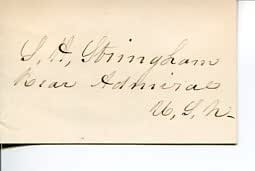 S. H. Stringham
Rear Admiral
U. S. N.